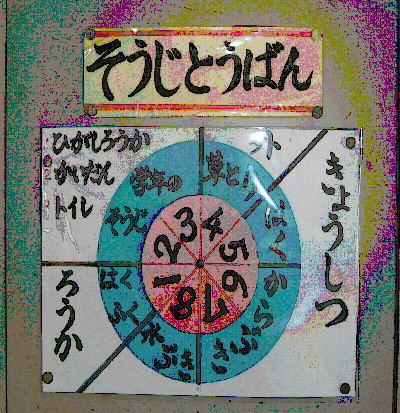 そうじとうばん
ひがしろうか
かいだん
トイレ
外
きょうしつ
ろうか
学年の
そうじ
草とり
はく
からぶき
水ぶき
はく
ふく
1
2
3
4
5
6
7
8